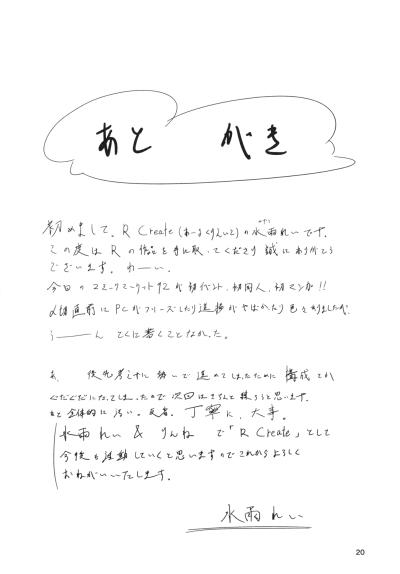 あとがき
初めまして。R Create(あーるくりえいと)の水雨れいです。
この度はRの作品を手に取ってくださり誠にありがとう
ございます。わーい。
今日のコミックマーケット92が初イベント、初同人、初マンガ!!
〆切直前にPCがフリーズしたり進捗がやばかったり色々ありましたが
うーーん とくに書くことなかった。
あ、 後先考えずに勢いで進めてしまったために構成とか
ぐだぐだになってしまったので次回はきちんと練ろうと思います。
あと全体的に汚い。反省。丁寧に、大事。
水雨れい & りんね で「R Create」として
今後も活動していくと思いますのでこれからよろしく
おねがいいたします。
水雨れい
20